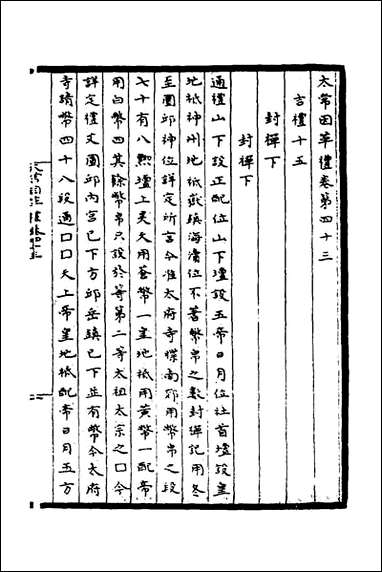 太常因革禮卷第四十三
吉禮十五
封禪下
封禪下
通禮山下設正配位山下壇設五帝日月位社首壇設皇
地祇神州地祇嶽鎮海瀆位不著幣帛之數封禪記用冬
至圜邱神位詳定所言今准太府寺牒南郊用幣帛之段
七十有八熙壇上昊天用蒼幣一皇地祇用黃幣一配帝
用白幣四其餘幣帛只設於等第二等太祖太宗之口今
詳定禮文圜邱內官已下方邱岳鎮已下並有幣今太府
寺請幣四十八段通口口天上帝皇地祇配帝日月五方